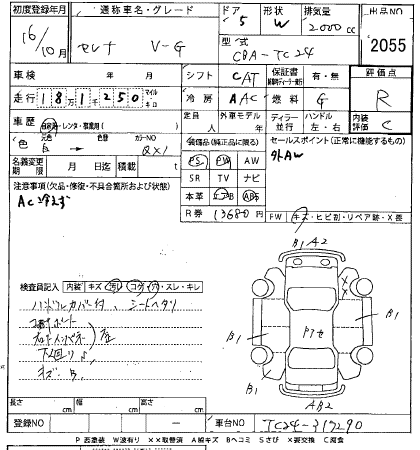 初度登録年月 通称車名・グレード ドア 形状 排気量 出品NO
16/10月 セレナ V-G 5 W 2000cc 2055
型式 CBA-TC24
車検 年 月 シフト CAT 保証書 有・無 評価点
走行 181250 マイル キロ 冷房 AAC 燃料 G R
車歴 自家用・レンタ・事業用( ) 定員 人 外車モデル 年 ディーラー 並行 ハンドル 左・右 内装評価 C
色 元色 白 → 色替 カラーNO QX1 装備品(純正品に限る) セールスポイント(正常に機能するもの)
名義変更期限 月 日迄 積載 t PS PW AW 外AW
注意事項(欠品・修復・不具合箇所および状態) SR TV ナビ
AC冷えず 本革 エアB ABS
R券 13680円 FW キズ・ヒビ割・リペア跡・X要
検査員記入 内装 キズ 汚レ コゲ・穴・スレ・キレ
ハンドルカバー付、シートヘタリ
下廻りサビ
キズ、B.
B1 A2
B1
B1
B1
AB2
長さ cm 幅 cm 高さ cm
登録NO — 車台NO TC24-317290
P 要塗装 W波有り ××取替済 A線キズ Bヘコミ Sさび ×要交換 C腐食